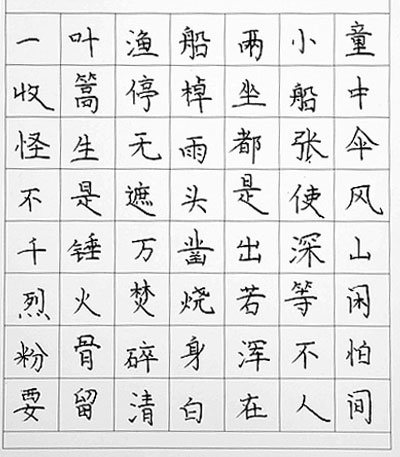 一叶渔船两小童
收篙停棹坐船中
怪生无雨都张伞
不是遮头是使风
千锤万凿出深山
烈火焚烧若等闲
粉骨碎身浑不怕
要留清白在人间